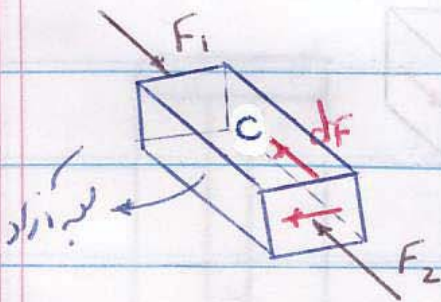 F1
C
dF
لبه آزاد
F2